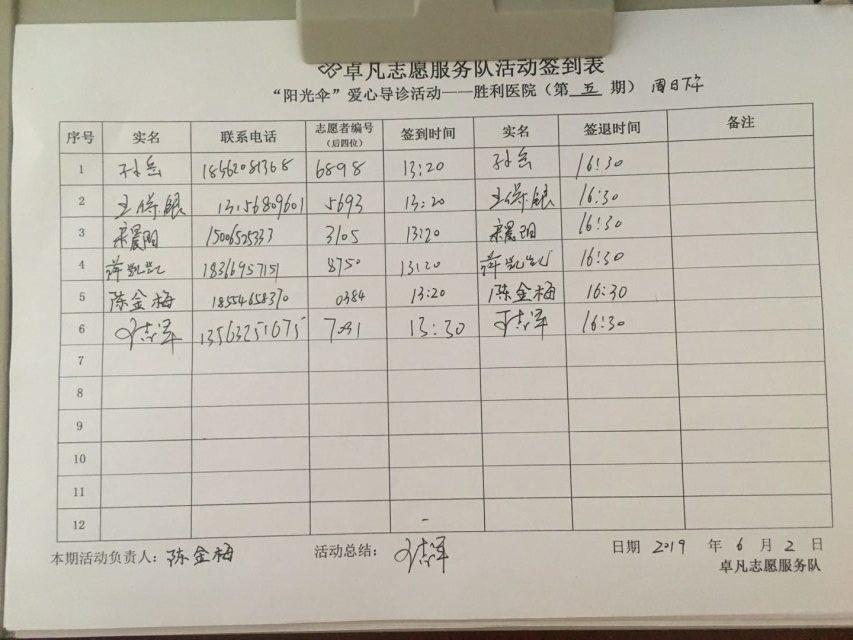 卓凡志愿服务队活动签到表
“阳光伞”爱心导诊活动——胜利医院(第 五 期) 周日下午
序号 实名 联系电话 志愿者编号(后四位) 签到时间 实名 签退时间 备注
1 孙岳 18562081368 6898 13:20 孙岳 16:30
2 王保银 13156809601 5693 13:20 王保银 16:30
3 宋晨阳 15006525333 3105 13:20 宋晨阳 16:30
4 蒋凯凯 18366957151 8750 13:20 蒋凯凯 16:30
5 陈金梅 18554658370 0384 13:20 陈金梅 16:30
6 于志军 13563251675 7031 13:30 于志军 16:30
7
8
9
10
11
12
本期活动负责人: 陈金梅 活动总结: 于志军 日期 2019 年 6 月 2 日
卓凡志愿服务队